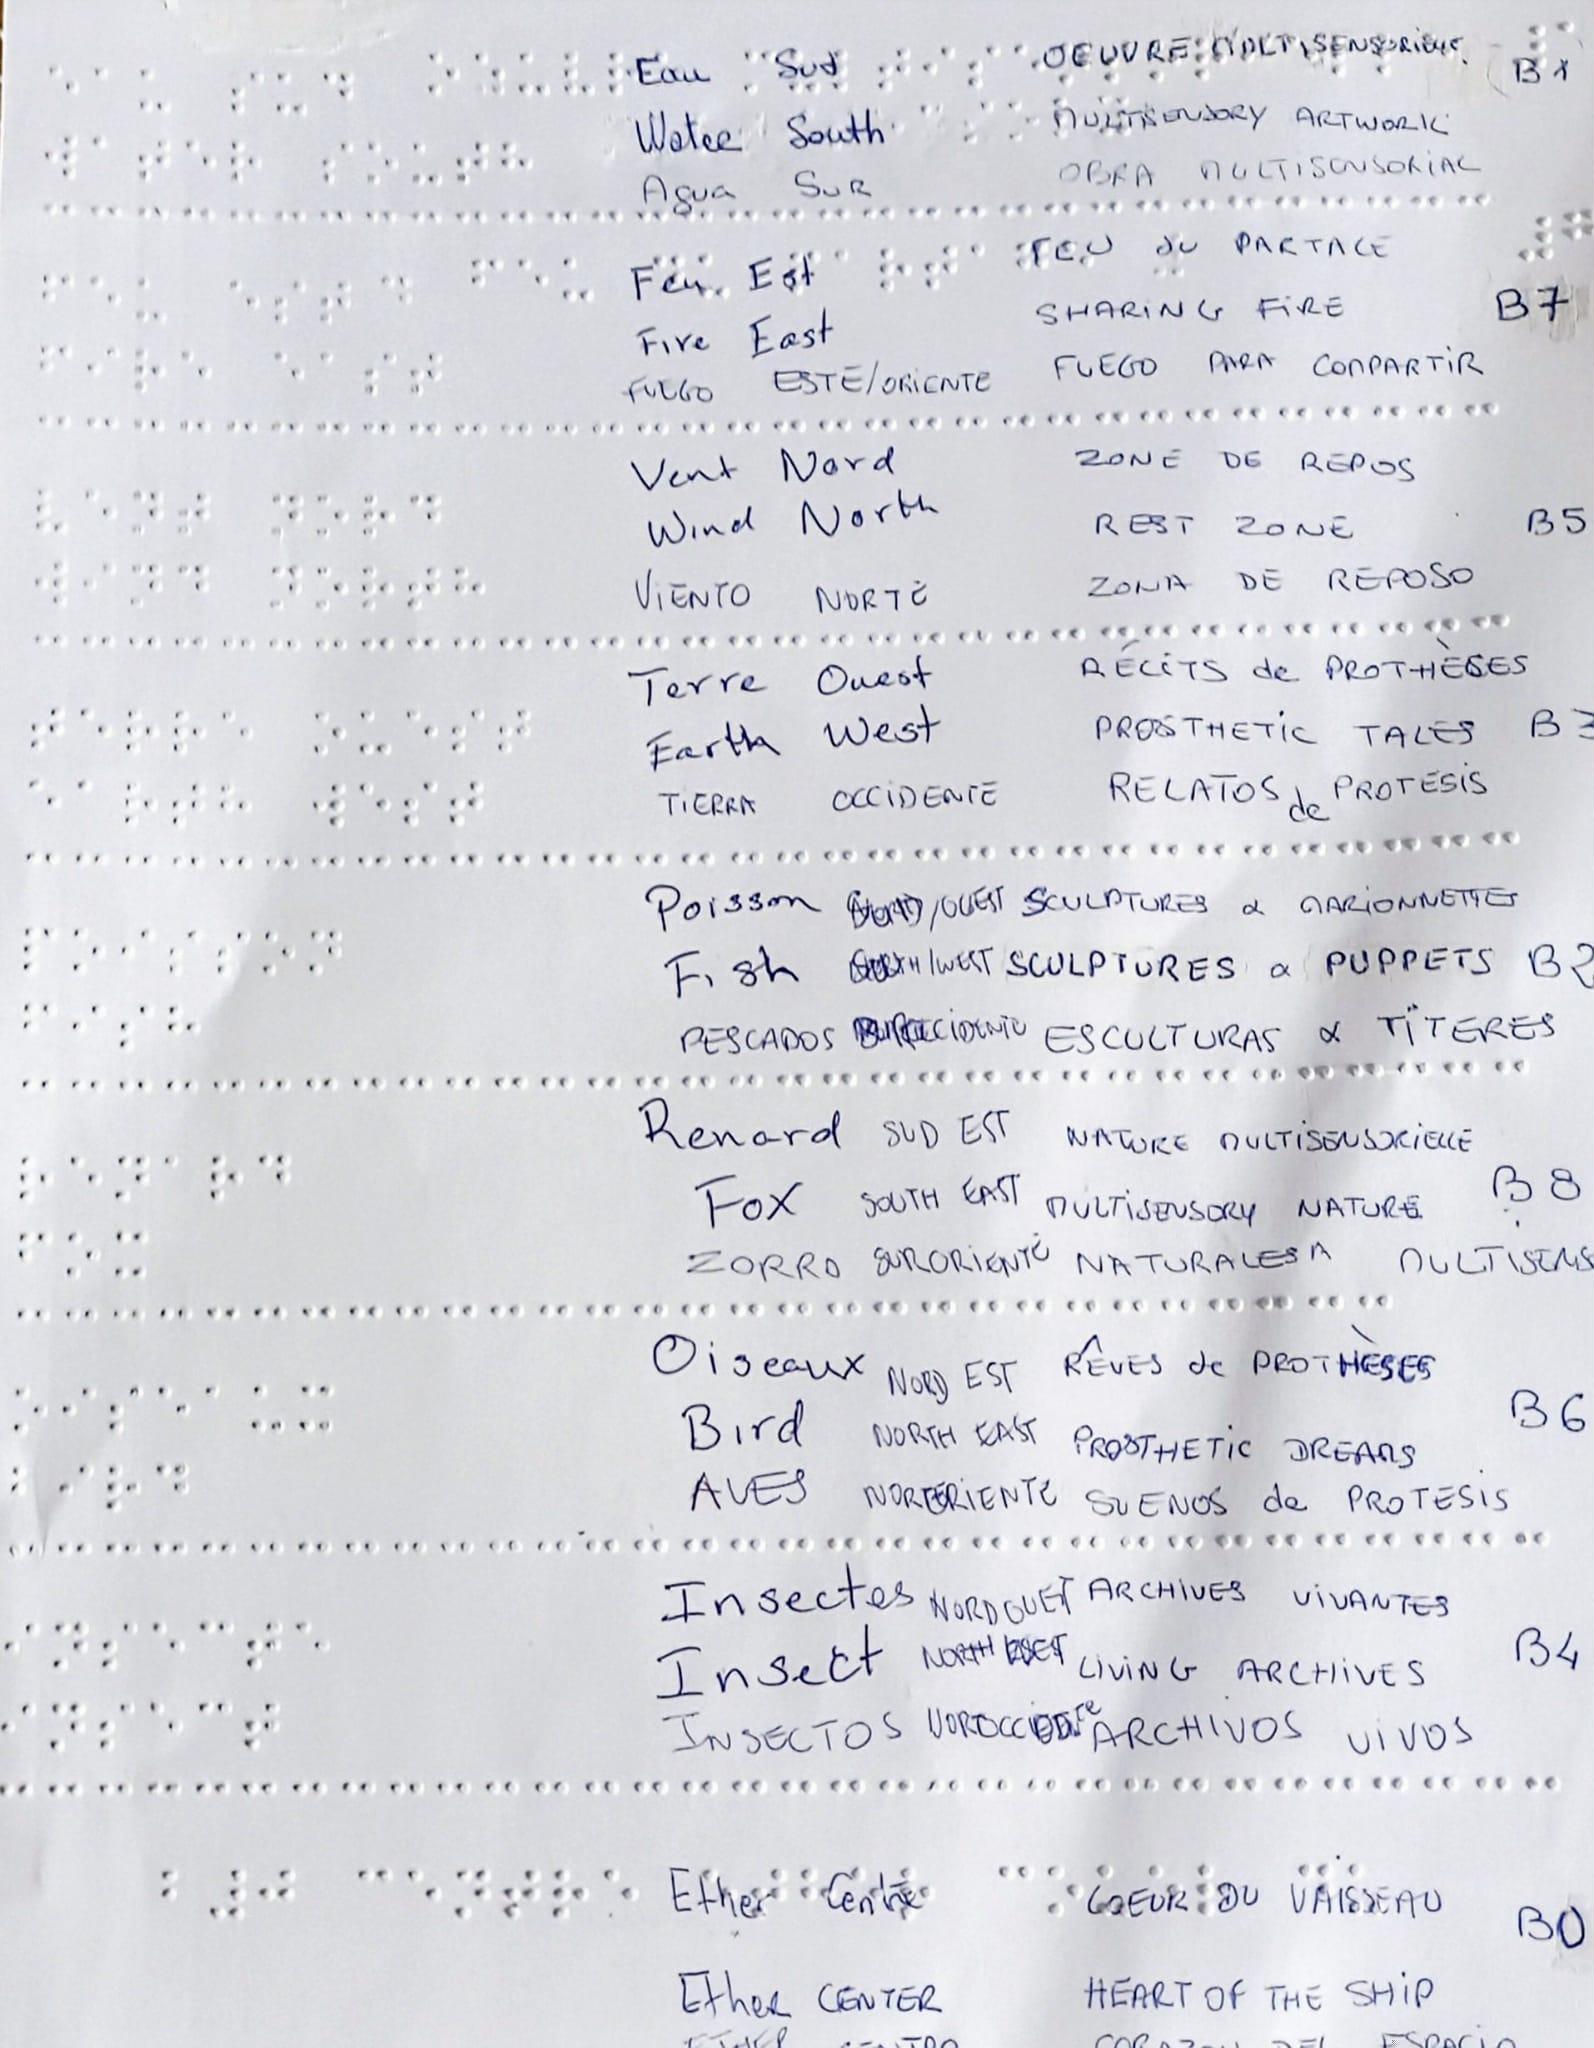 Eau Sud OEUVRE MULTISENSORIELLE B1
Water South MULTISENSORY ARTWORK
Agua SUR OBRA MULTISENSORIAL
Feu Est FEU DU PARTAGE
Fire East SHARING FIRE B7
FUEGO ESTE/ORIENTE FUEGO PARA COMPARTIR
Vent Nord ZONE DE REPOS
Wind North REST ZONE B5
VIENTO NORTE ZONA DE REPOSO
Terre Ouest RÉCITS de PROTHÈSES
Earth West PROSTHETIC TALES B3
TIERRA OCCIDENTE RELATOS de PROTESIS
Poisson /OUEST SCULPTURES & MARIONNETTES
Fish /WEST SCULPTURES & PUPPETS B2
PESCADOS ESCULTURAS & TITERES
Renard SUD EST NATURE MULTISENSORIELLE
Fox SOUTH EAST MULTISENSORY NATURE B8
ZORRO SURORIENTE NATURALESA MULTISENS
Oiseaux NORD EST RÊVES de PROTHÈSES
Bird NORTH EAST PROSTHETIC DREAMS B6
AVES NORORIENTE SUENOS de PROTESIS
Insectes NORD OUEST ARCHIVES VIVANTES
Insect NORTH WEST LIVING ARCHIVES B4
INSECTOS NOROCCIDENTE ARCHIVOS VIVOS
Ether Centre COEUR DU VAISSEAU B0
Ether CENTER HEART OF THE SHIP
ETHER CENTRO CORAZON DEL ESPACIO